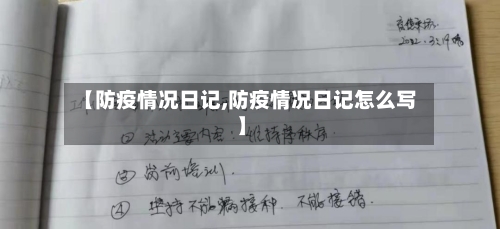 2022.3.19晴
【防疫情况日记,防疫情况日记怎么写
】
② 活动主要内容：维持序秩序.
③ 岗前培训.
④ 坚持不能漏接种. 不能接错.